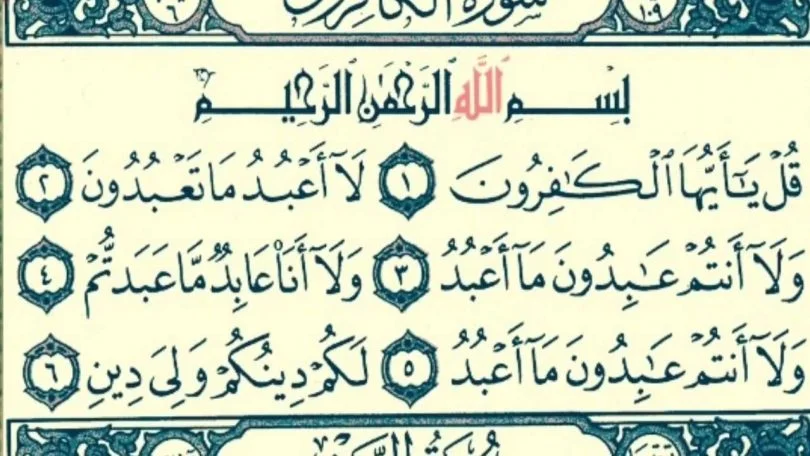 سورة الكافرون ١٠٩
بِسْمِ ٱللَّهِ ٱلرَّحْمَٰنِ ٱلرَّحِيمِ
قُلْ يَٰٓأَيُّهَا ٱلْكَٰفِرُونَ ١ لَآ أَعْبُدُ مَا تَعْبُدُونَ ٢
وَلَآ أَنتُمْ عَٰبِدُونَ مَآ أَعْبُدُ ٣ وَلَآ أَنَا۠ عَابِدٌ مَّا عَبَدتُّمْ ٤
وَلَآ أَنتُمْ عَٰبِدُونَ مَآ أَعْبُدُ ٥ لَكُمْ دِينُكُمْ وَلِىَ دِينِ ٦